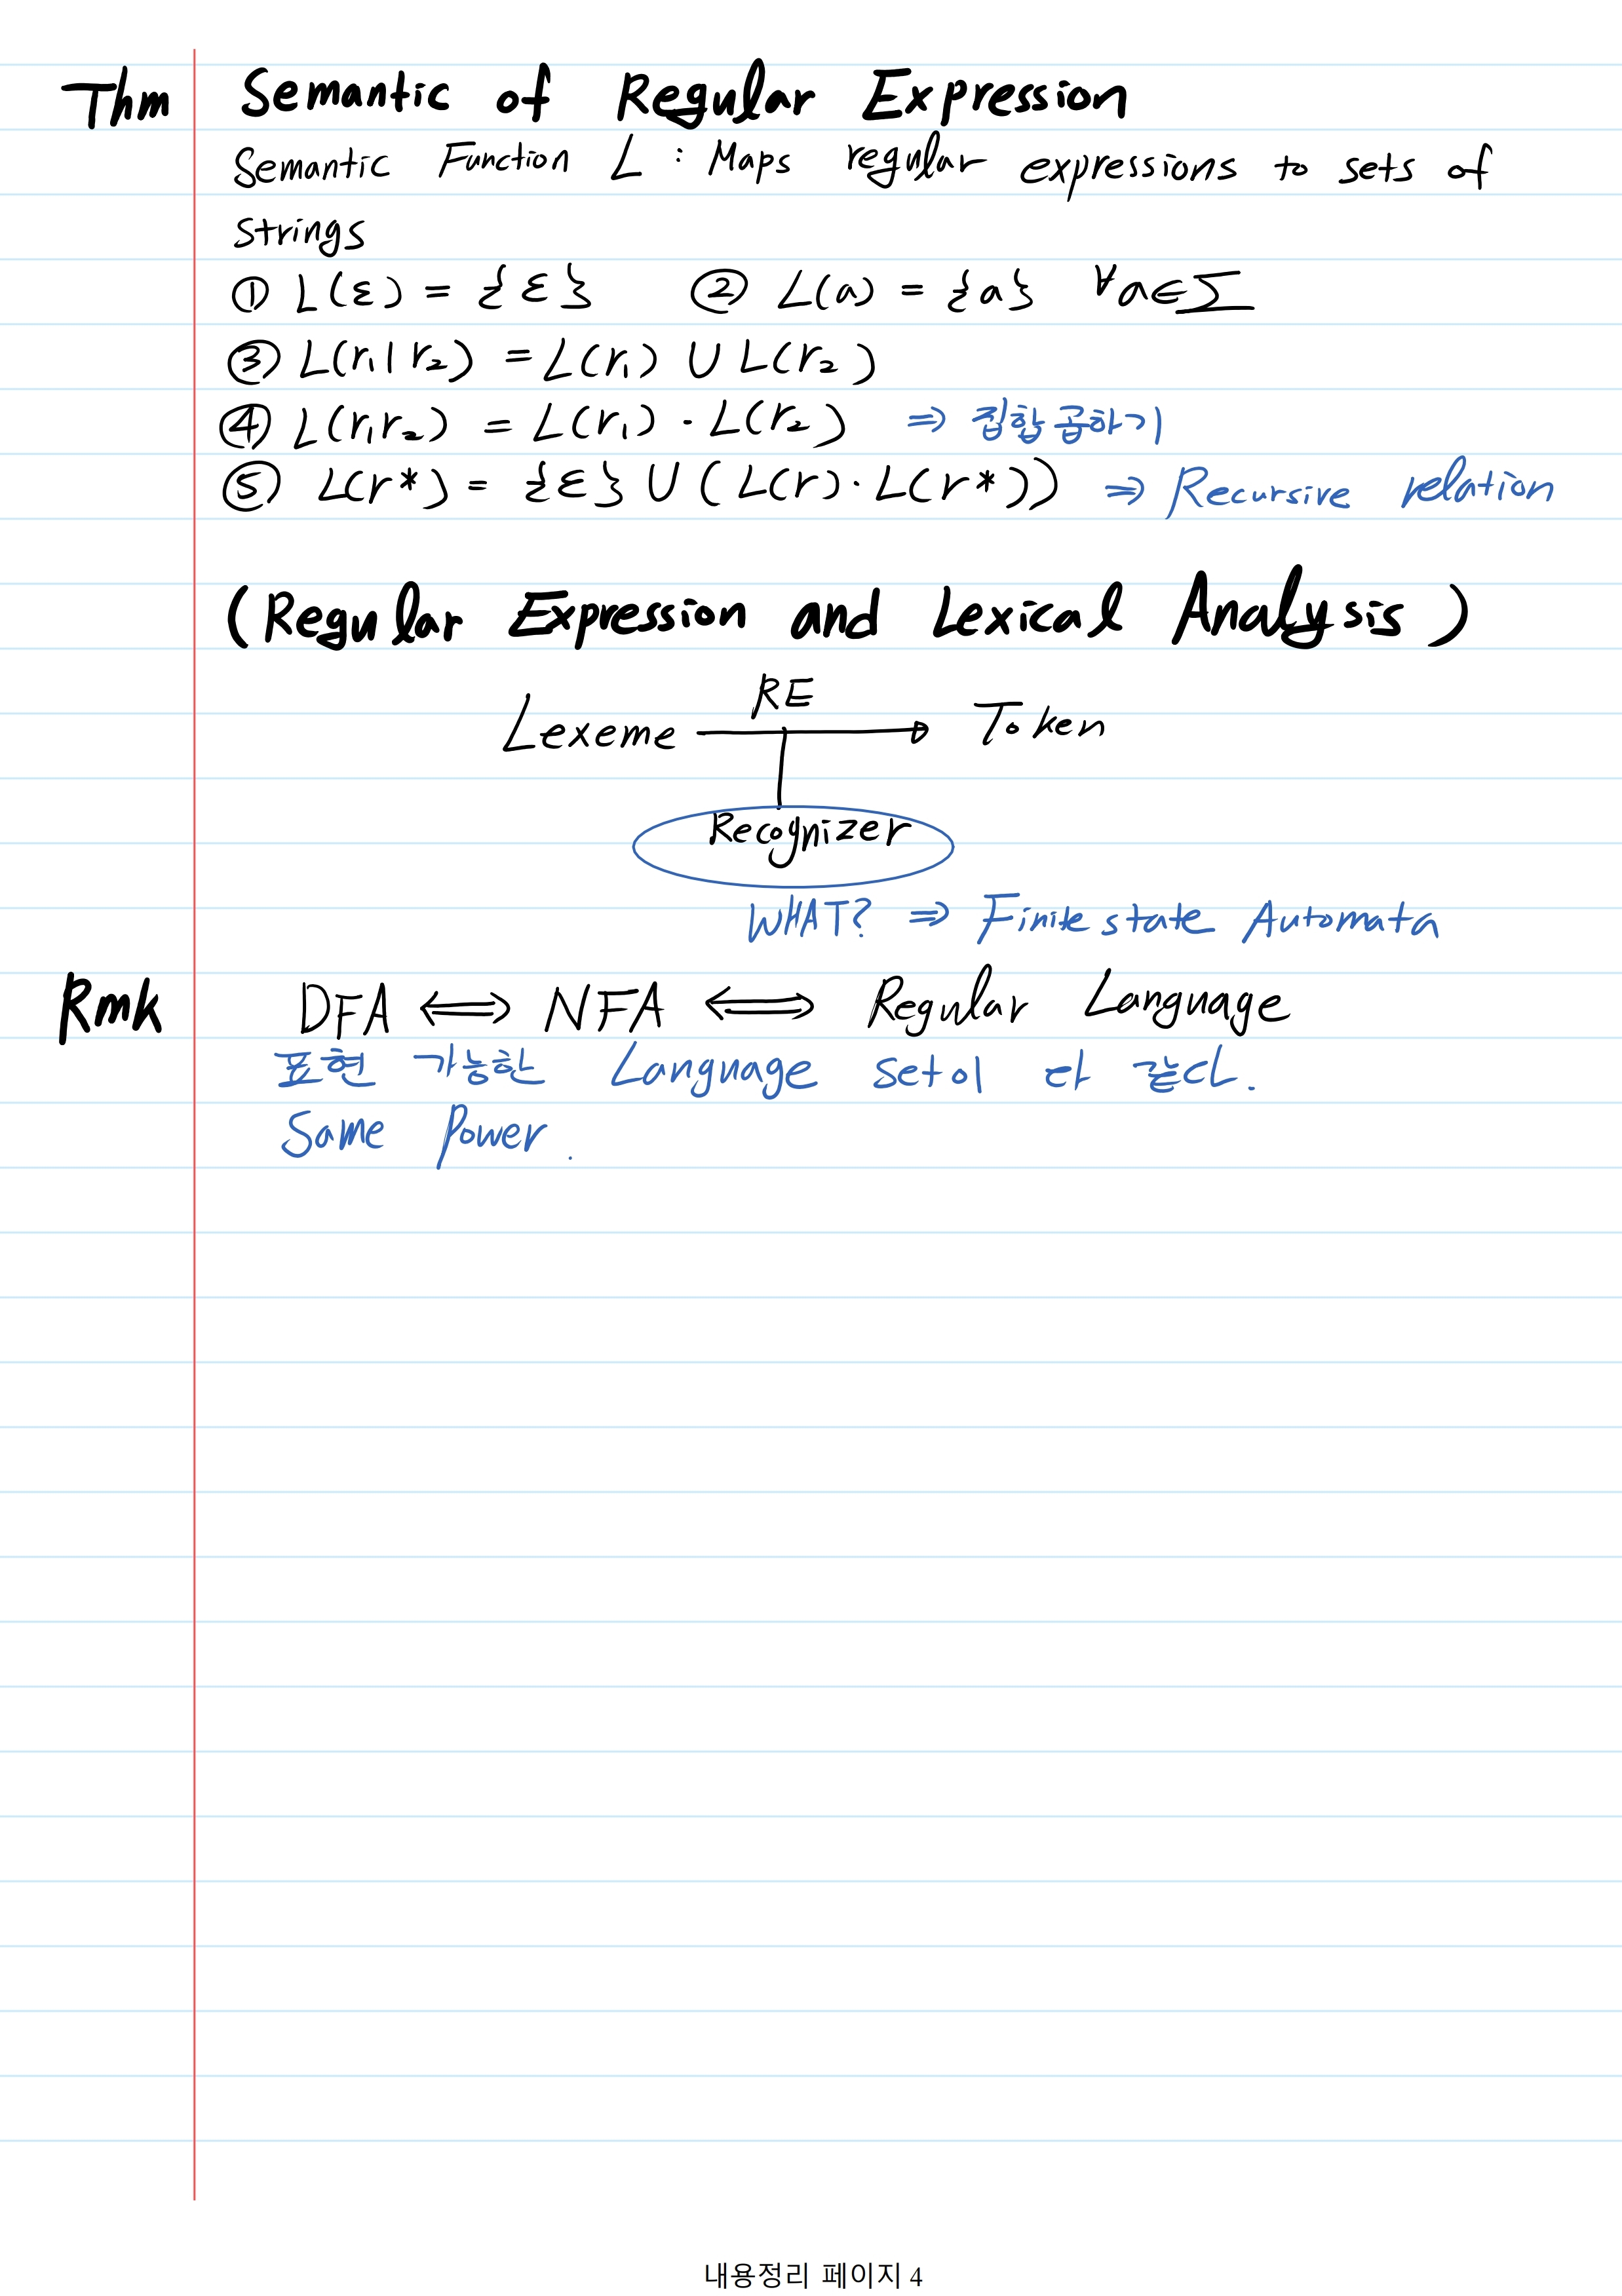 Thm Semantic of Regular Expression
Semantic Function L : Maps regular expressions to sets of
strings
① L(ε) = {ε} ② L(a) = {a} ∀a∈Σ
③ L(r₁|r₂) = L(r₁) ∪ L(r₂)
④ L(r₁r₂) = L(r₁) · L(r₂) ⇒ 집합 곱하기
⑤ L(r*) = {ε} ∪ (L(r) · L(r*)) ⇒ Recursive relation
(Regular Expression and Lexical Analysis)
RE
Lexeme → Token
Recognizer
WHAT? ⇒ Finite state Automata
Rmk DFA ⟺ NFA ⟺ Regular Language
표현 가능한 Language set이 다 같다.
Same Power.
내용정리 페이지 4